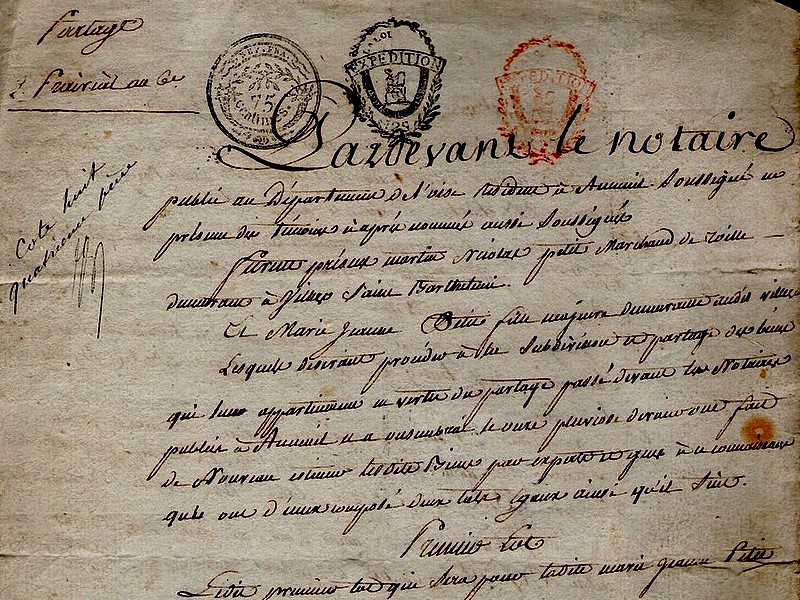 Partage
Pardevant le notaire
publié au Département de l'oise résident à Auneuil Soussigné en
présence des témoins ci après nommés aussi Soussignés
furent présens martin Nicolas petit Marchand de toille
demeurant à Villers Saint Barthelemi.
Et Marie Jeanne Petit fille majeure demeurante audit villers
Lesquels desirant procéder à la Subdivision et partage des biens
qui leur appartiennent en vertu du partage passé devant les Notaires
publics à Auneuil il y a le onze pluviose dernier ont fait
de Nouveau estimer lesdits Biens par experts et gens à ce connoissans
qui ont d'iceux composé deux lots Egaux ainsi qu'il Suit.
Premier Lot
Ledit premier lot qui sera pour ladite marie jeanne Petit
Cote huit
quatrieme piece
75
Centimes
LA LOI
EXPEDITION
EXPEDITION